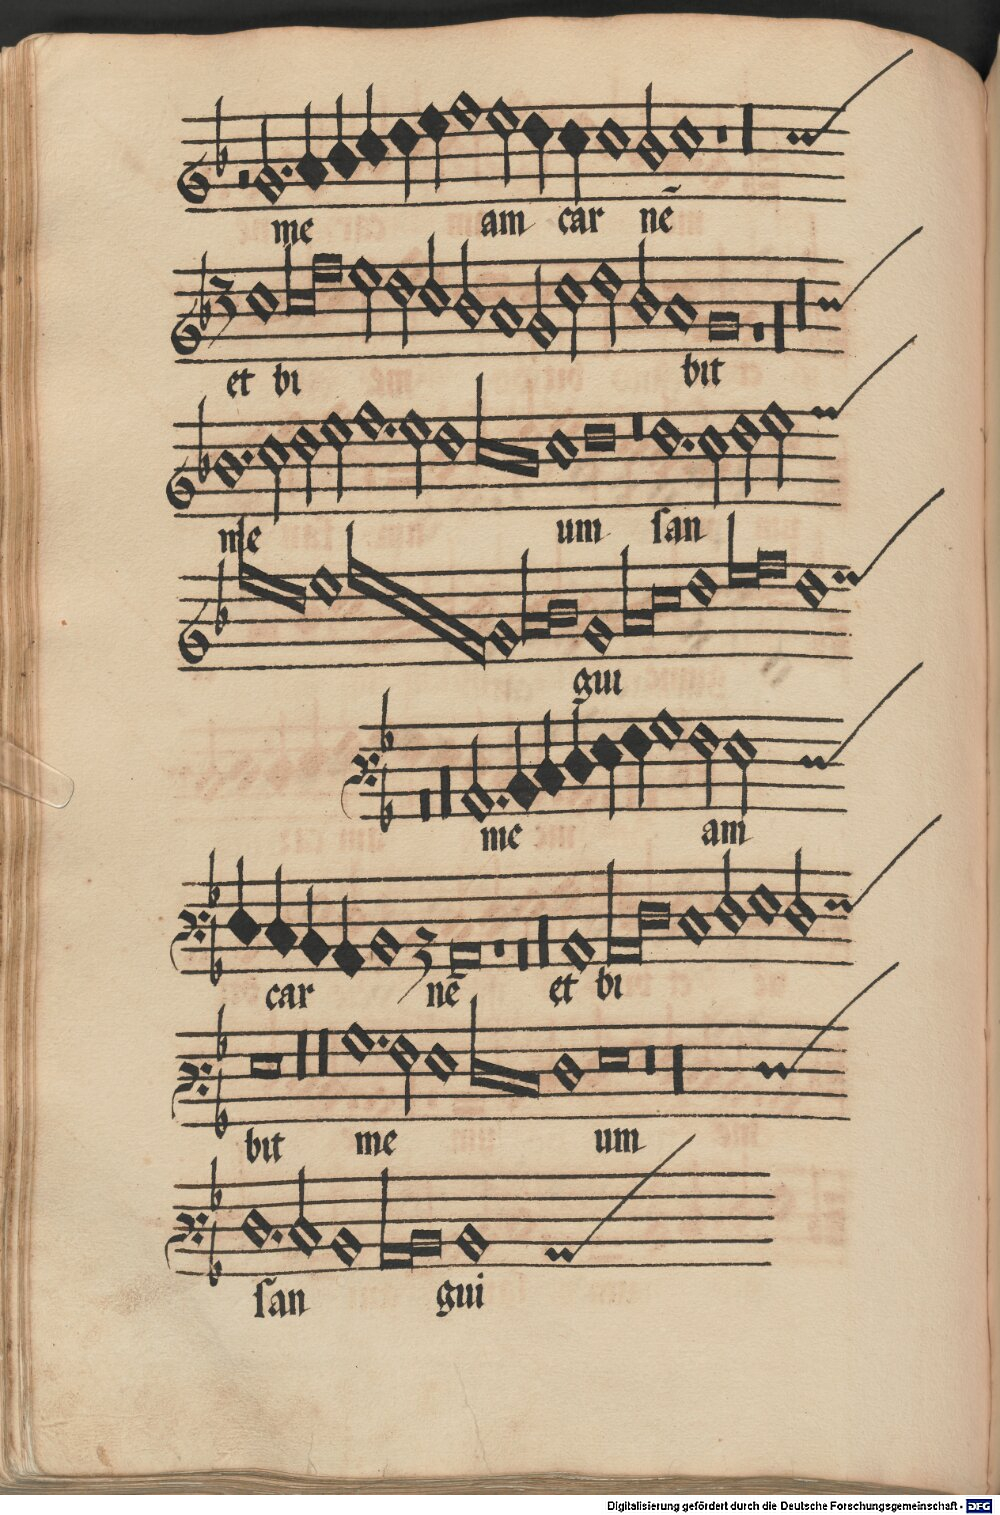 me am car nē
et bi bit
me um san
gui
me am
car nē et bi
bit me um
san gui
Digitalisierung gefördert durch die Deutsche Forschungsgemeinschaft - DFG